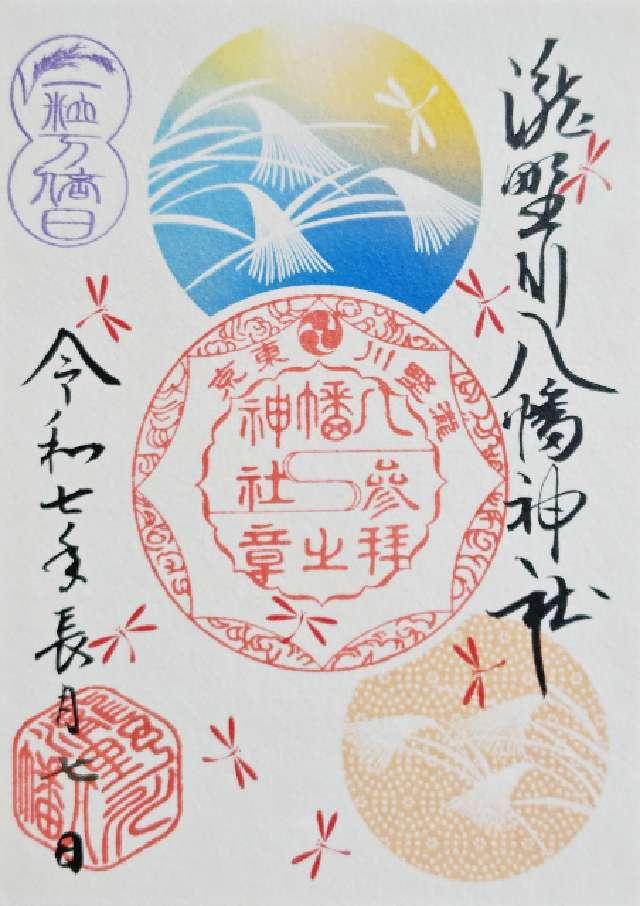 瀧野川八幡神社
東京
瀧野川
八幡神社
参拜之章
令和七年長月七日
一粒万倍日